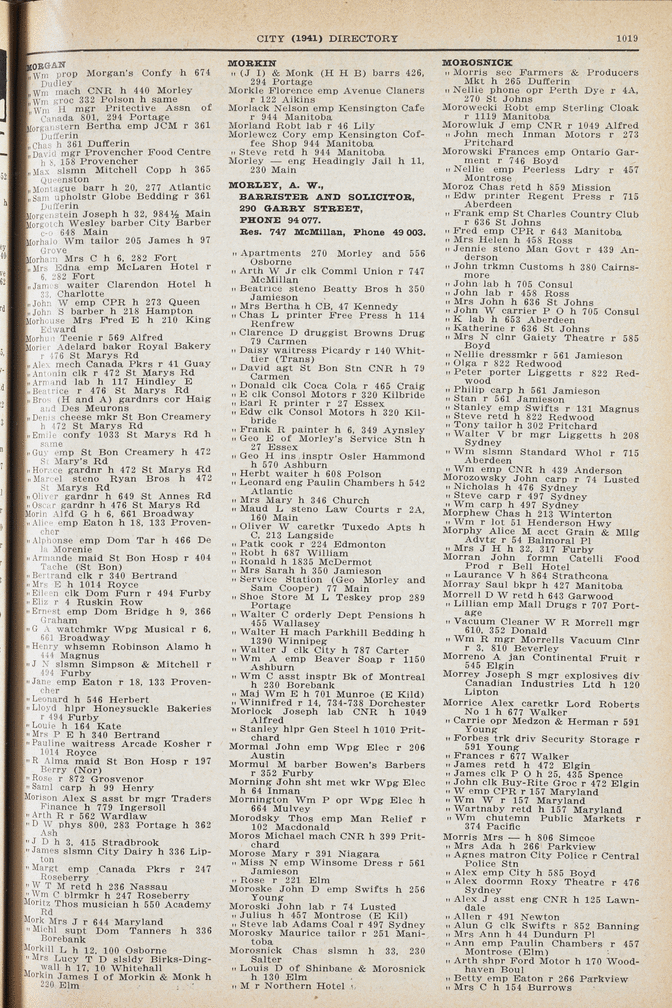 CITY (1941) DIRECTORY 1019
MORGAN
„ Wm prop Morgan's Confy h 674
Dudley
„ Wm mach CNR h 440 Morley
„ Wm groc 332 Polson h same
„ Wm H mgr Pritective Assn of
Canada 801, 294 Portage
Morganstern Bertha emp JCM r 361
Dufferin
„ Chas h 361 Dufferin
„ David mgr Provencher Food Centre
h 8, 158 Provencher
„ Max slsmn Mitchell Copp h 365
Queenston
„ Montague barr h 20, 277 Atlantic
„ Sam upholstr Globe Bedding r 361
Dufferin
Morgenstein Joseph h 32, 984½ Main
Morgotch Wesley barber City Barber
c-o 648 Main
Morhalo Wm tailor 205 James h 97
Grove
Morham Mrs C h 6, 282 Fort
„ Mrs Edna emp McLaren Hotel r
6, 282 Fort
„ James waiter Clarendon Hotel h
33, Charlotte
„ John W emp CPR h 273 Queen
„ John S barber h 218 Hampton
Morhouse Mrs Fred E h 210 King
Edward
Morhun Teenie r 569 Alfred
Morier Adelard baker Royal Bakery
r 476 St Marys Rd
„ Alex mech Canada Pkrs r 41 Guay
„ Antonin clk r 472 St Marys Rd
„ Armand lab h 117 Hindley E
„ Beatrice r 476 St Marys Rd
„ Bros (H and A) gardnrs cor Haig
and Des Meurons
„ Denis cheese mkr St Bon Creamery
h 472 St Marys Rd
„ Emile confy 1033 St Marys Rd h
same
„ Guy emp St Bon Creamery h 472
St Mary's Rd
„ Horace gardnr h 472 St Marys Rd
„ Marcel steno Ryan Bros h 472
St Marys Rd
„ Oliver gardnr h 649 St Annes Rd
„ Oscar gardnr h 476 St Marys Rd
Morin Alfd G h 6, 661 Broadway
„ Alice emp Eaton h 18, 133 Proven-
cher
„ Alphonse emp Dom Tar h 466 De
la Morenie
„ Armande maid St Bon Hosp r 404
Tache (St Bon)
„ Bertrand clk r 340 Bertrand
„ Mrs E h 1014 Royce
„ Eileen clk Dom Furn r 494 Furby
„ Eliz r 4 Ruskin Row
„ Ernest emp Dom Bridge h 9, 366
Graham
„ G A watchmkr Wpg Musical r 6,
661 Broadway
„ Henry whsemn Robinson Alamo h
444 Magnus
„ J N slsmn Simpson & Mitchell r
494 Furby
„ Jane emp Eaton r 18, 133 Proven-
cher
„ Leonard h 546 Herbert
„ Lloyd hlpr Honeysuckle Bakeries
r 494 Furby
„ Louie h 164 Kate
„ Mrs P E h 340 Bertrand
„ Pauline waitress Arcade Kosher r
1014 Royce
„ R Alma maid St Bon Hosp r 197
Berry (Nor)
„ Rose r 872 Grosvenor
„ Saml carp h 99 Henry
Morison Alex S asst br mgr Traders
Finance h 779 Ingersoll
„ Arth R r 562 Wardlaw
„ D W phys 800, 283 Portage h 362
Ash
„ J D h 3, 415 Stradbrook
„ James slsmn City Dairy h 336 Lip-
ton
„ Margt emp Canada Pkrs r 247
Roseberry
„ W T M retd h 236 Nassau
„ Wm C blrmkr h 247 Roseberry
Moritz Thos musician h 550 Academy
Rd
Mork Mrs J r 644 Maryland
„ Michl supt Dom Tanners h 336
Borebank
Morkill L h 12, 100 Osborne
„ Mrs Lucy T D slsldy Birks-Ding-
wall h 17, 10 Whitehall
Morkin James I of Morkin & Monk h
220 Elm
MORKIN
„ (J I) & Monk (H H B) barrs 426,
294 Portage
Morkle Florence emp Avenue Claners
r 122 Aikins
Morlack Nelson emp Kensington Cafe
r 944 Manitoba
Morland Robt lab r 46 Lily
Morlewcz Cory emp Kensington Cof-
fee Shop 944 Manitoba
„ Steve retd h 944 Manitoba
Morley — eng Headingly Jail h 11,
230 Main
MORLEY, A. W.,
BARRISTER AND SOLICITOR,
290 GARRY STREET,
PHONE 94 077.
Res. 747 McMillan, Phone 49 003.
„ Apartments 270 Morley and 556
Osborne
„ Arth W Jr clk Comml Union r 747
McMillan
„ Beatrice steno Beatty Bros h 350
Jamieson
„ Mrs Bertha h CB, 47 Kennedy
„ Chas L printer Free Press h 114
Renfrew
„ Clarence D druggist Browns Drug
79 Carmen
„ Daisy waitress Picardy r 140 Whit-
tier (Trans)
„ David agt St Bon Stn CNR h 79
Carmen
„ Donald clk Coca Cola r 465 Craig
„ E clk Consol Motors r 320 Kilbride
„ Earl R printer r 27 Essex
„ Edw clk Consol Motors h 320 Kil-
bride
„ Frank R painter h 6, 349 Aynsley
„ Geo E of Morley's Service Stn h
27 Essex
„ Geo H ins insptr Osler Hammond
h 570 Ashburn
„ Herbt waiter h 608 Polson
„ Leonard eng Paulin Chambers h 542
Atlantic
„ Mrs Mary h 346 Church
„ Maud L steno Law Courts r 2A,
160 Main
„ Oliver W caretkr Tuxedo Apts h
C, 213 Langside
„ Patk cook r 224 Edmonton
„ Robt h 687 William
„ Ronald h 1835 McDermot
„ Mrs Sarah h 350 Jamieson
„ Service Station (Geo Morley and
Sam Cooper) 77 Main
„ Shoe Store M L Teskey prop 289
Portage
„ Walter C orderly Dept Pensions h
455 Wallasey
„ Walter H mach Parkhill Bedding h
1390 Winnipeg
„ Walter J clk City h 787 Carter
„ Wm A emp Beaver Soap r 1150
Ashburn
„ Wm C asst insptr Bk of Montreal
h 230 Borebank
„ Maj Wm E h 701 Munroe (E Kild)
„ Winnifred r 14, 734-738 Dorchester
Morlock Joseph lab CNR h 1049
Alfred
„ Stanley hlpr Gen Steel h 1010 Prit-
chard
Mormal John emp Wpg Elec r 206
Austin
Mormul M barber Bowen's Barbers
r 352 Furby
Morning John sht met wkr Wpg Elec
h 64 Inman
Mornington Wm P opr Wpg Elec h
664 Mulvey
Morodsky Thos emp Man Relief r
102 Macdonald
Moros Michael mach CNR h 399 Prit-
chard
Morose Mary r 391 Niagara
„ Miss N emp Winsome Dress r 561
Jamieson
„ Rose r 221 Elm
Moroske John D emp Swifts h 256
Young
Moroski John lab r 74 Lusted
„ Julius h 457 Montrose (E Kil)
„ Steve lab Adams Coal r 497 Sydney
Morosky Maurice tailor r 251 Mani-
toba
Morosnick Chas slsmn h 33, 230
Salter
„ Louis D of Shinbane & Morosnick
h 130 Elm
„ M r Northern Hotel
MOROSNICK
„ Morris sec Farmers & Producers
Mkt h 265 Dufferin
„ Nellie phone opr Perth Dye r 4A,
270 St Johns
Morowecki Robt emp Sterling Cloak
r 1119 Manitoba
Morowluk J emp CNR r 1049 Alfred
„ John mech Inman Motors r 273
Pritchard
Morowski Frances emp Ontario Gar-
ment r 746 Boyd
„ Nellie emp Peerless Ldry r 457
Montrose
Moroz Chas retd h 859 Mission
„ Edw printer Regent Press r 715
Aberdeen
„ Frank emp St Charles Country Club
r 636 St Johns
„ Fred emp CPR r 643 Manitoba
„ Mrs Helen h 458 Ross
„ John maint Man Govt r 439 An-
derson
„ John trkmn Customs h 380 Cairns-
more
„ John lab h 705 Consul
„ John lab r 458 Ross
„ Mrs John h 636 St Johns
„ John W carrier P O h 705 Consul
„ K lab h 653 Aberdeen
„ Katherine r 636 St Johns
„ Mrs N clnr Gaiety Theatre r 585
Boyd
„ Nellie dressmkr r 561 Jamieson
„ Olga r 822 Redwood
„ Peter porter Liggetts r 822 Red-
wood
„ Philip carp h 561 Jamieson
„ Stan r 561 Jamieson
„ Stanley emp Swifts r 131 Magnus
„ Steve retd h 822 Redwood
„ Tony tailor h 302 Pritchard
„ Walter V br mgr Liggetts h 208
Sydney
„ Wm slsmn Standard Whol r 715
Aberdeen
„ Wm emp CNR h 439 Anderson
Morozowsky John carp r 74 Lusted
„ Nicholas h 476 Sydney
„ Steve carp r 497 Sydney
„ Wm carp h 497 Sydney
Morphew Chas h 213 Winterton
„ Wm r lot 51 Henderson Hwy
Morphy Alice M acct Grain & Mllg
Advtg r 54 Balmoral Pl
„ Mrs J H h 32, 317 Furby
Morran John formn Catelli Food
Prod r Bell Hotel
„ Laurance V h 864 Strathcona
Morray Saul bkpr h 427 Manitoba
Morrell D W retd h 643 Garwood
„ Lillian emp Mall Drugs r 707 Port-
age
„ Vacuum Cleaner W R Morrell mgr
610, 352 Donald
„ Wm R mgr Morrells Vacuum Clnr
r 3, 810 Beverley
Morreno A jan Continental Fruit r
545 Elgin
Morrey Joseph S mgr explosives div
Canadian Industries Ltd h 120
Lipton
Morrice Alex caretkr Lord Roberts
No 1 h 677 Walker
„ Carrie opr Medzon & Herman r 591
Young
„ Forbes trk driv Security Storage r
591 Young
„ Frances r 677 Walker
„ James retd h 472 Elgin
„ James clk P O h 25, 435 Spence
„ John clk Buy-Rite Groc r 472 Elgin
„ W emp CPR r 157 Maryland
„ Wm W r 157 Maryland
„ Wartnaby retd h 157 Maryland
„ Wm chutemn Public Markets r
374 Pacific
Morris Mrs — h 806 Simcoe
„ Mrs Ada h 266 Parkview
„ Agnes matron City Police r Central
Police Stn
„ Alex emp City h 585 Boyd
„ Alex doormn Roxy Theatre r 476
Sydney
„ Alex J asst eng CNR h 125 Lawn-
dale
„ Allen r 491 Newton
„ Alun G clk Swifts r 852 Banning
„ Mrs Ann h 44 Dundurn Pl
„ Ann emp Paulin Chambers r 457
Montrose (Elm)
„ Arth shpr Ford Motor h 170 Wood-
haven Boul
„ Betty emp Eaton r 266 Parkview
„ Mrs C h 154 Burrows